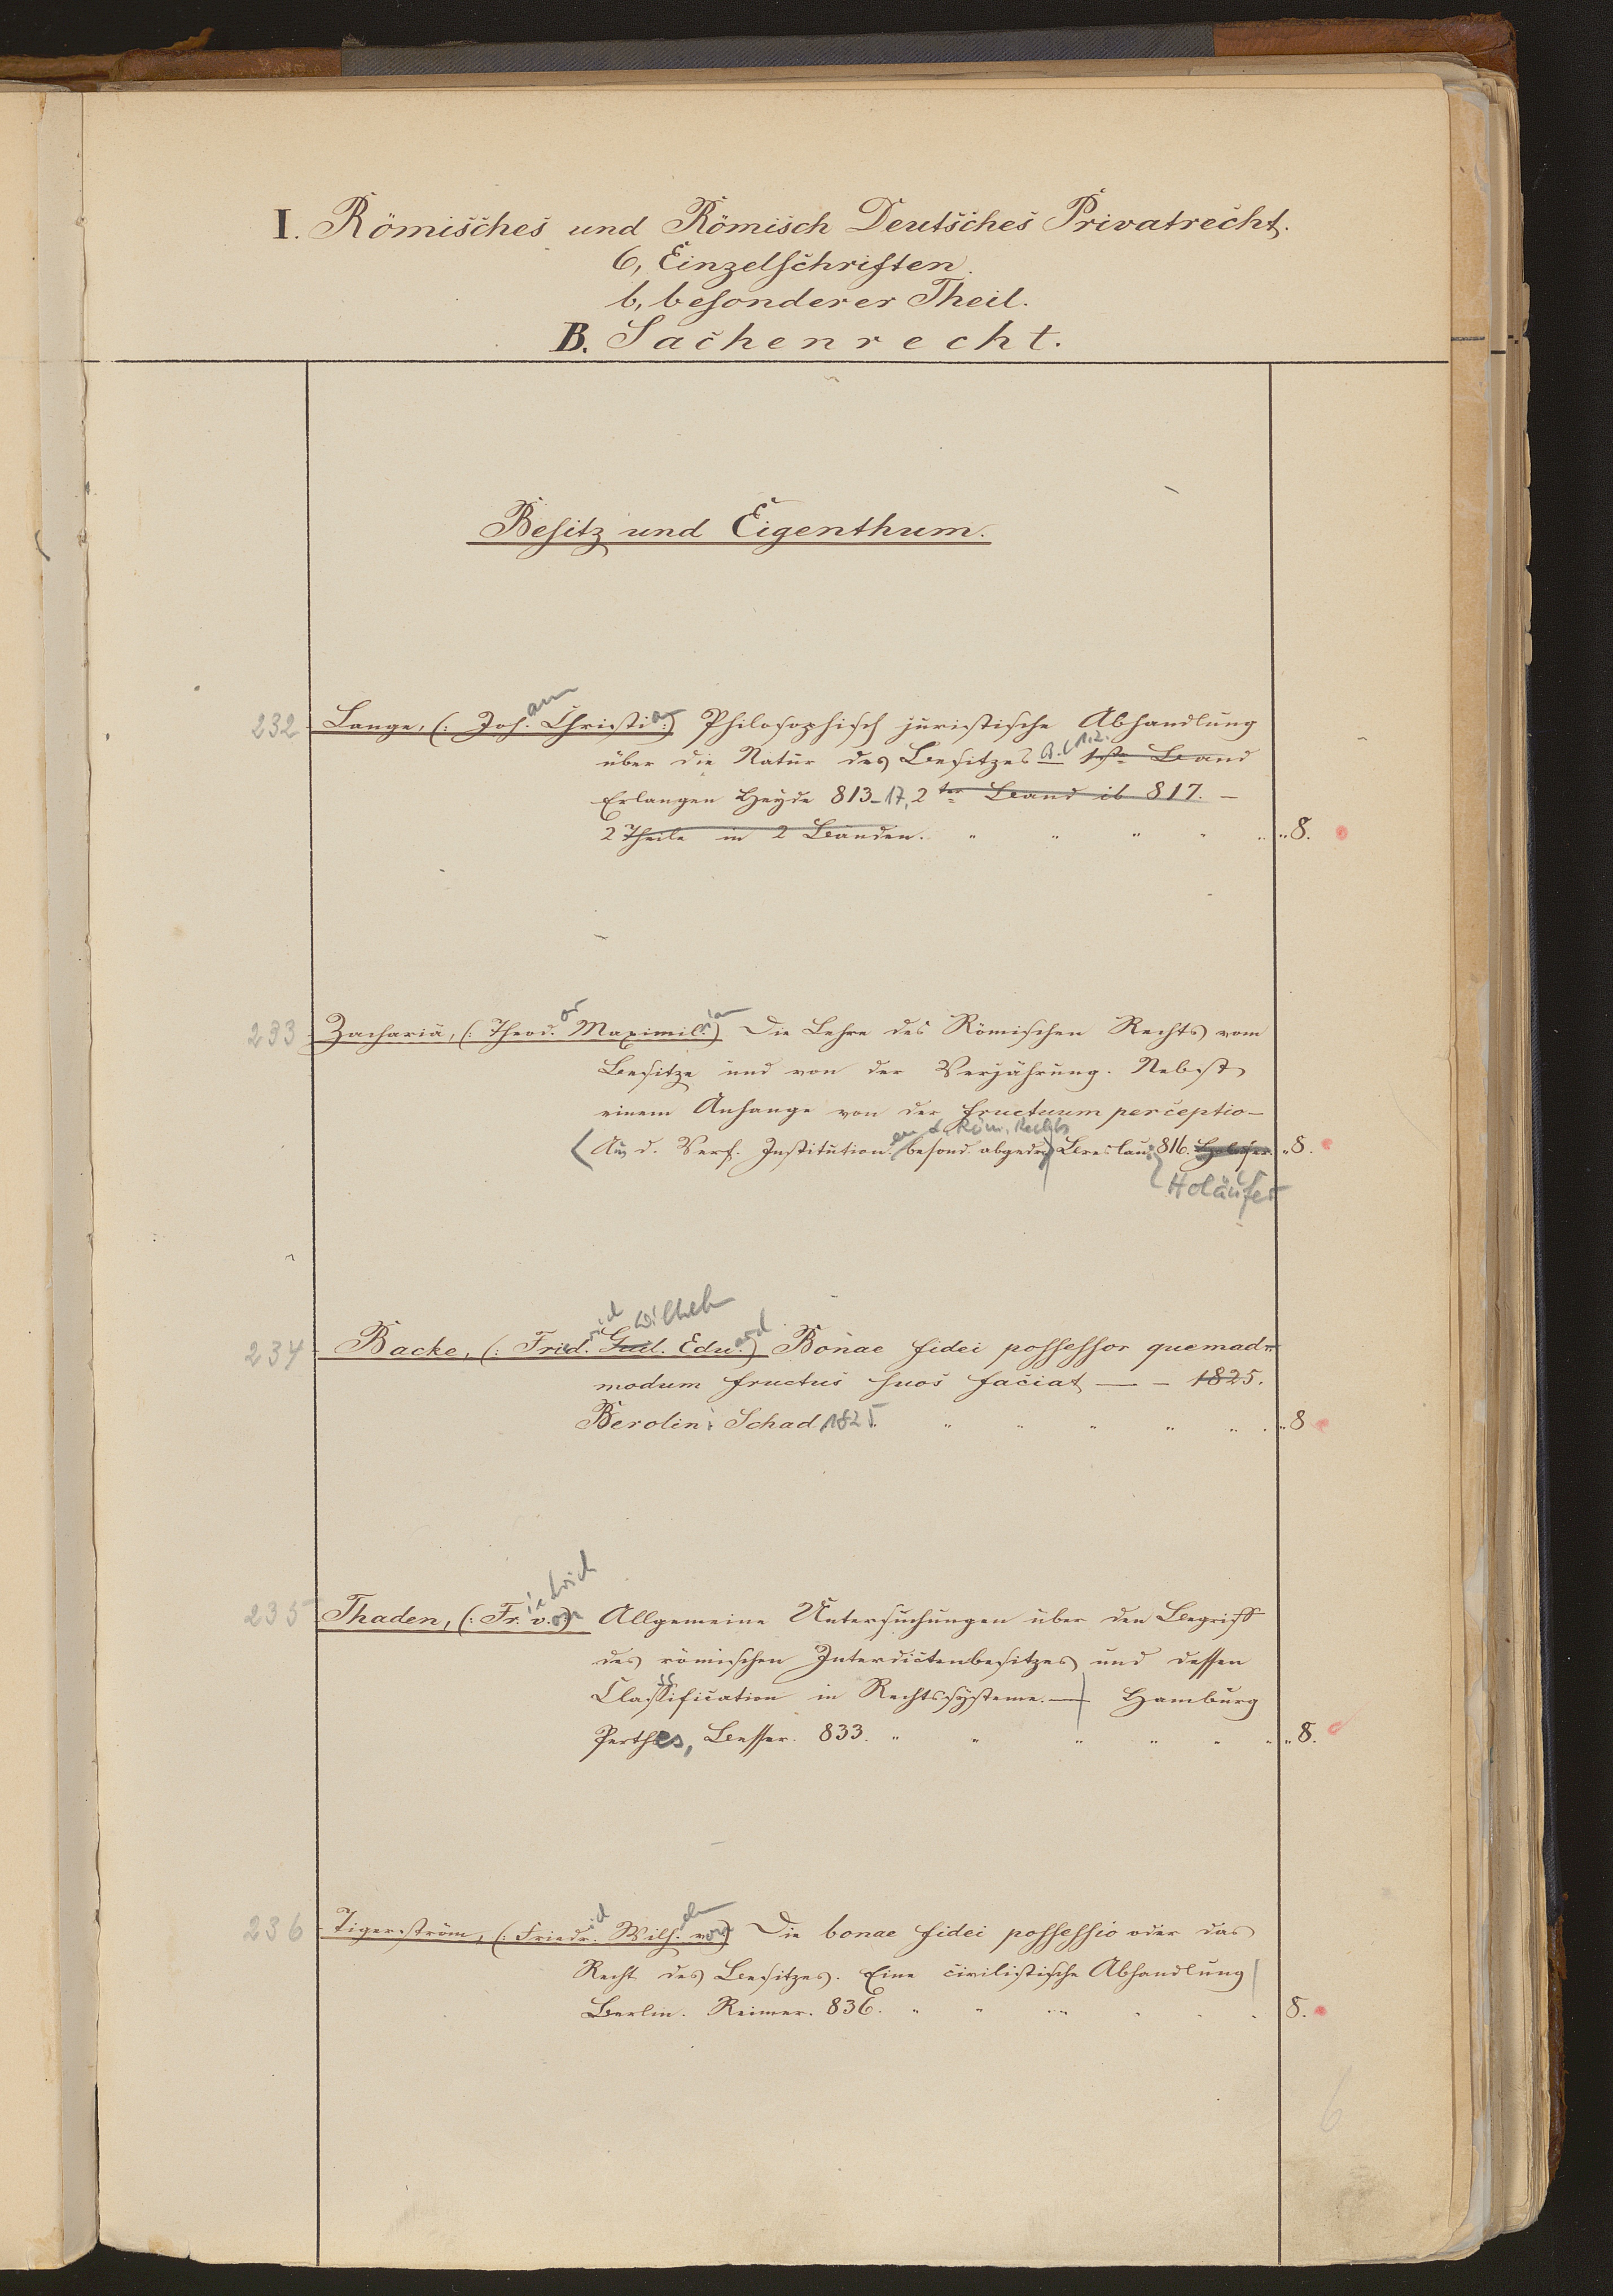 I. Römisches und Römisch Deutsches Privatrecht.
6, Einzelschriften.
b, besonderer Theil.
B. Sachenrecht.
Besitz und Eigenthum.
232 Lange, (: Johann Christian:) Philosophisch juristische Abhandlung
über die Natur des Besitzes B. 1.2. 1ster Band
Erlangen Heyde 813-17, 2ter Band ib 817. —
2 Theile in 2 Bänden. " " " " " " 8.
233 Zachariä, (: Theodor Maximilian) Die Lehre des Römischen Rechts vom
Besitze und von der Verjährung. Nebst
einem Anhange von der fructuum perceptio-
en d. Röm. Rechts
(Aus d. Verf. Institution. besond. abgedr.) Breslau: 816. " 8.
Holäufer
234 Backe, (: Friedrich Wilhelm Guil. Eduard) Bonae fidei possessor quemad-
modum fructus suos faciat — — 1825.
Berolini Schad, 1825. " " " " " " 8
235 Thaden, (: Friedrich von) Allgemeine Untersuchungen über den Begriff
des römischen Interdictenbesitzes und dessen
Classification in Rechtssysteme. — Hamburg
Perthes, Besser. 833. " " " " " " " 8.
236 Tigerström, (: Friedrich Wilhelm von) Die bonae fidei possessio oder das
Recht des Besitzes. Eine civilistische Abhandlung
Berlin. Reimer. 836. " " " " " 8.
6